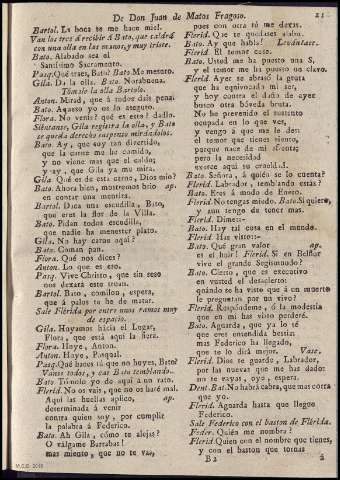 De Don Juan de Matos Fragoso. 11
Bartol. La boca se me hace miel.
Van los tres á recibir á Bato, que saldrá
con una olla en las manos, y muy triste.
Bato. Alabado sea el
Santísimo Sacramento.
Pasq. Qué traes, Bato? Bato. Me mesuro.
Gila. Da la olla. Bato. Norabuena.
Tómale la olla Bartolo.
Anton. Mirad, que á todos dais pena.
Bato. Aquesto yo lo aseguro.
Flora. No venis? qué es esto? dadlo.
Siéntanse, Gila registra la olla, y Bato
se queda derecho suspenso mirándolos.
Bato. Ay, que soy tan dirigido,
que la carne me he comido,
y no viene mas que el caldo;
y ay, que Gila ya me mira.
Gila. Qué es de esta carne, Dios mio?
Bato. Ahora bien, mostremos brio ap.
en contar una mentira.
Bartol. Daca una escudilla, Bato,
que eres la flor de la Villa.
Bato. Pidan todos escudilla,
que nadie ha menester plato.
Gila. No hay carne aquí?
Bato. Coman pan.
Flora. Qué nos dices?
Anton. Lo que es eso.
Pasq. Vive Christo, que sin seso
nos dexará este truan.
Bartol. Bato, comilon, espera,
que á palos te he de matar.
Sale Flérida por entre unos ramos muy
de espacio.
Gila. Huyamos hácia el Lugar,
Flora, que está aquí la fiera.
Flora. Huye, Anton.
Anton. Huye, Pasqual.
Pasq. Qué haces tú que no huyes, Bato?
Vanse todos, y cae Bato temblando.
Bato. Tiémolo yo de aquí á un rato.
Flerid. No os vais, que no os haré mal.
Aquí las huellas aplico, ap.
determinada á venir
contra quien soy, por cumplir
la palabra á Federico.
Bato. Ah Gila, cómo te alejas?
O válgame Barrabas!
mas miento, que no te vas,
pues con otra tú me dexas.
Flerid. Que te quedases alabo.
Bato. Ay que habla! Levántase.
Flerid. El temor cese.
Bato. Usted me ha puesto una S,
y el temor me ha puesto un clavo.
Flerid. Ayer se abrasó la gruta
que ha equivocada mi ser,
y hoy contra el daño de ayer
busco otra bóveda bruta.
No he perdido el instinto
ocupada en lo que ver,
y vengo á que me le den
el temor que tienes siento,
porque nace de mi afrenta;
pero la necesidad
exerce aquí su crueldad.
Bato. Señora, á quién se lo cuenta?
Flerid. Labrador, temblando estás?
Bato. Eres á modo de Enero.
Flerid. No tengas miedo. Bato. Si quiero,
y aun tengo de tener mas.
Flerid. Dime:-
Bato. Hay tal cosa en el mundo.
Flerid. Has visto:-
Bato. Qué gran valor ap.
es el huir! Flerid. Si en Belflor
vive el grande Segismundo?
Bato. Cierto, que es executivo
en usted el desacierto:
quándo te ha visto que á un muerto
le preguntan por un vivo?
Flerid. Respóndeme, ó la modestia
que en mí has visto perderé.
Bato. Aguarda, que ya lo té
que eres entendida bestia:
mas Federico ha llegado,
que te lo dirá mejor. Vase.
Flerid. Dios te guarde, Labrador,
por las nuevas que me has dado
no te vayas, oye, espera.
Dent. Bat. No habrá cabra, que mas corra
que yo.
Flerid. Aguarda hasta que llegue
Federico.
Sale Federico con el baston de Flérida.
Feder. Quién me nombra?
Flerid Quien con el nombre que tienes,
y con el baston que tomas
B 2 á
M.C.D. 2018